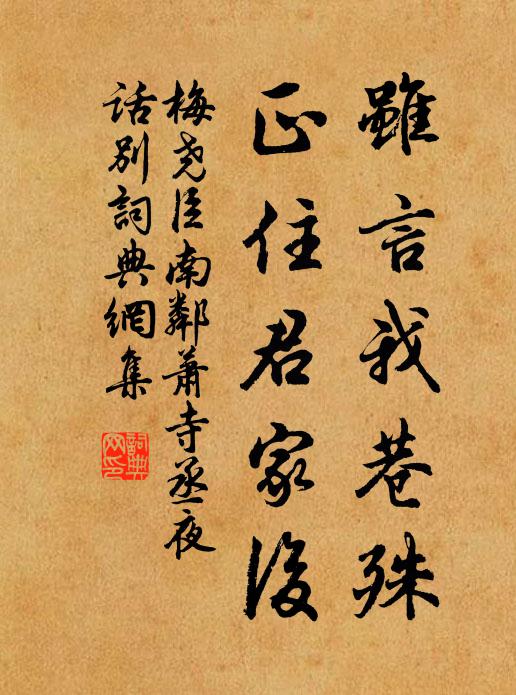 雖言我巷殊
正住君家後
梅堯臣南鄰蕭寺丞夜
话别詞典網集
詞典網印